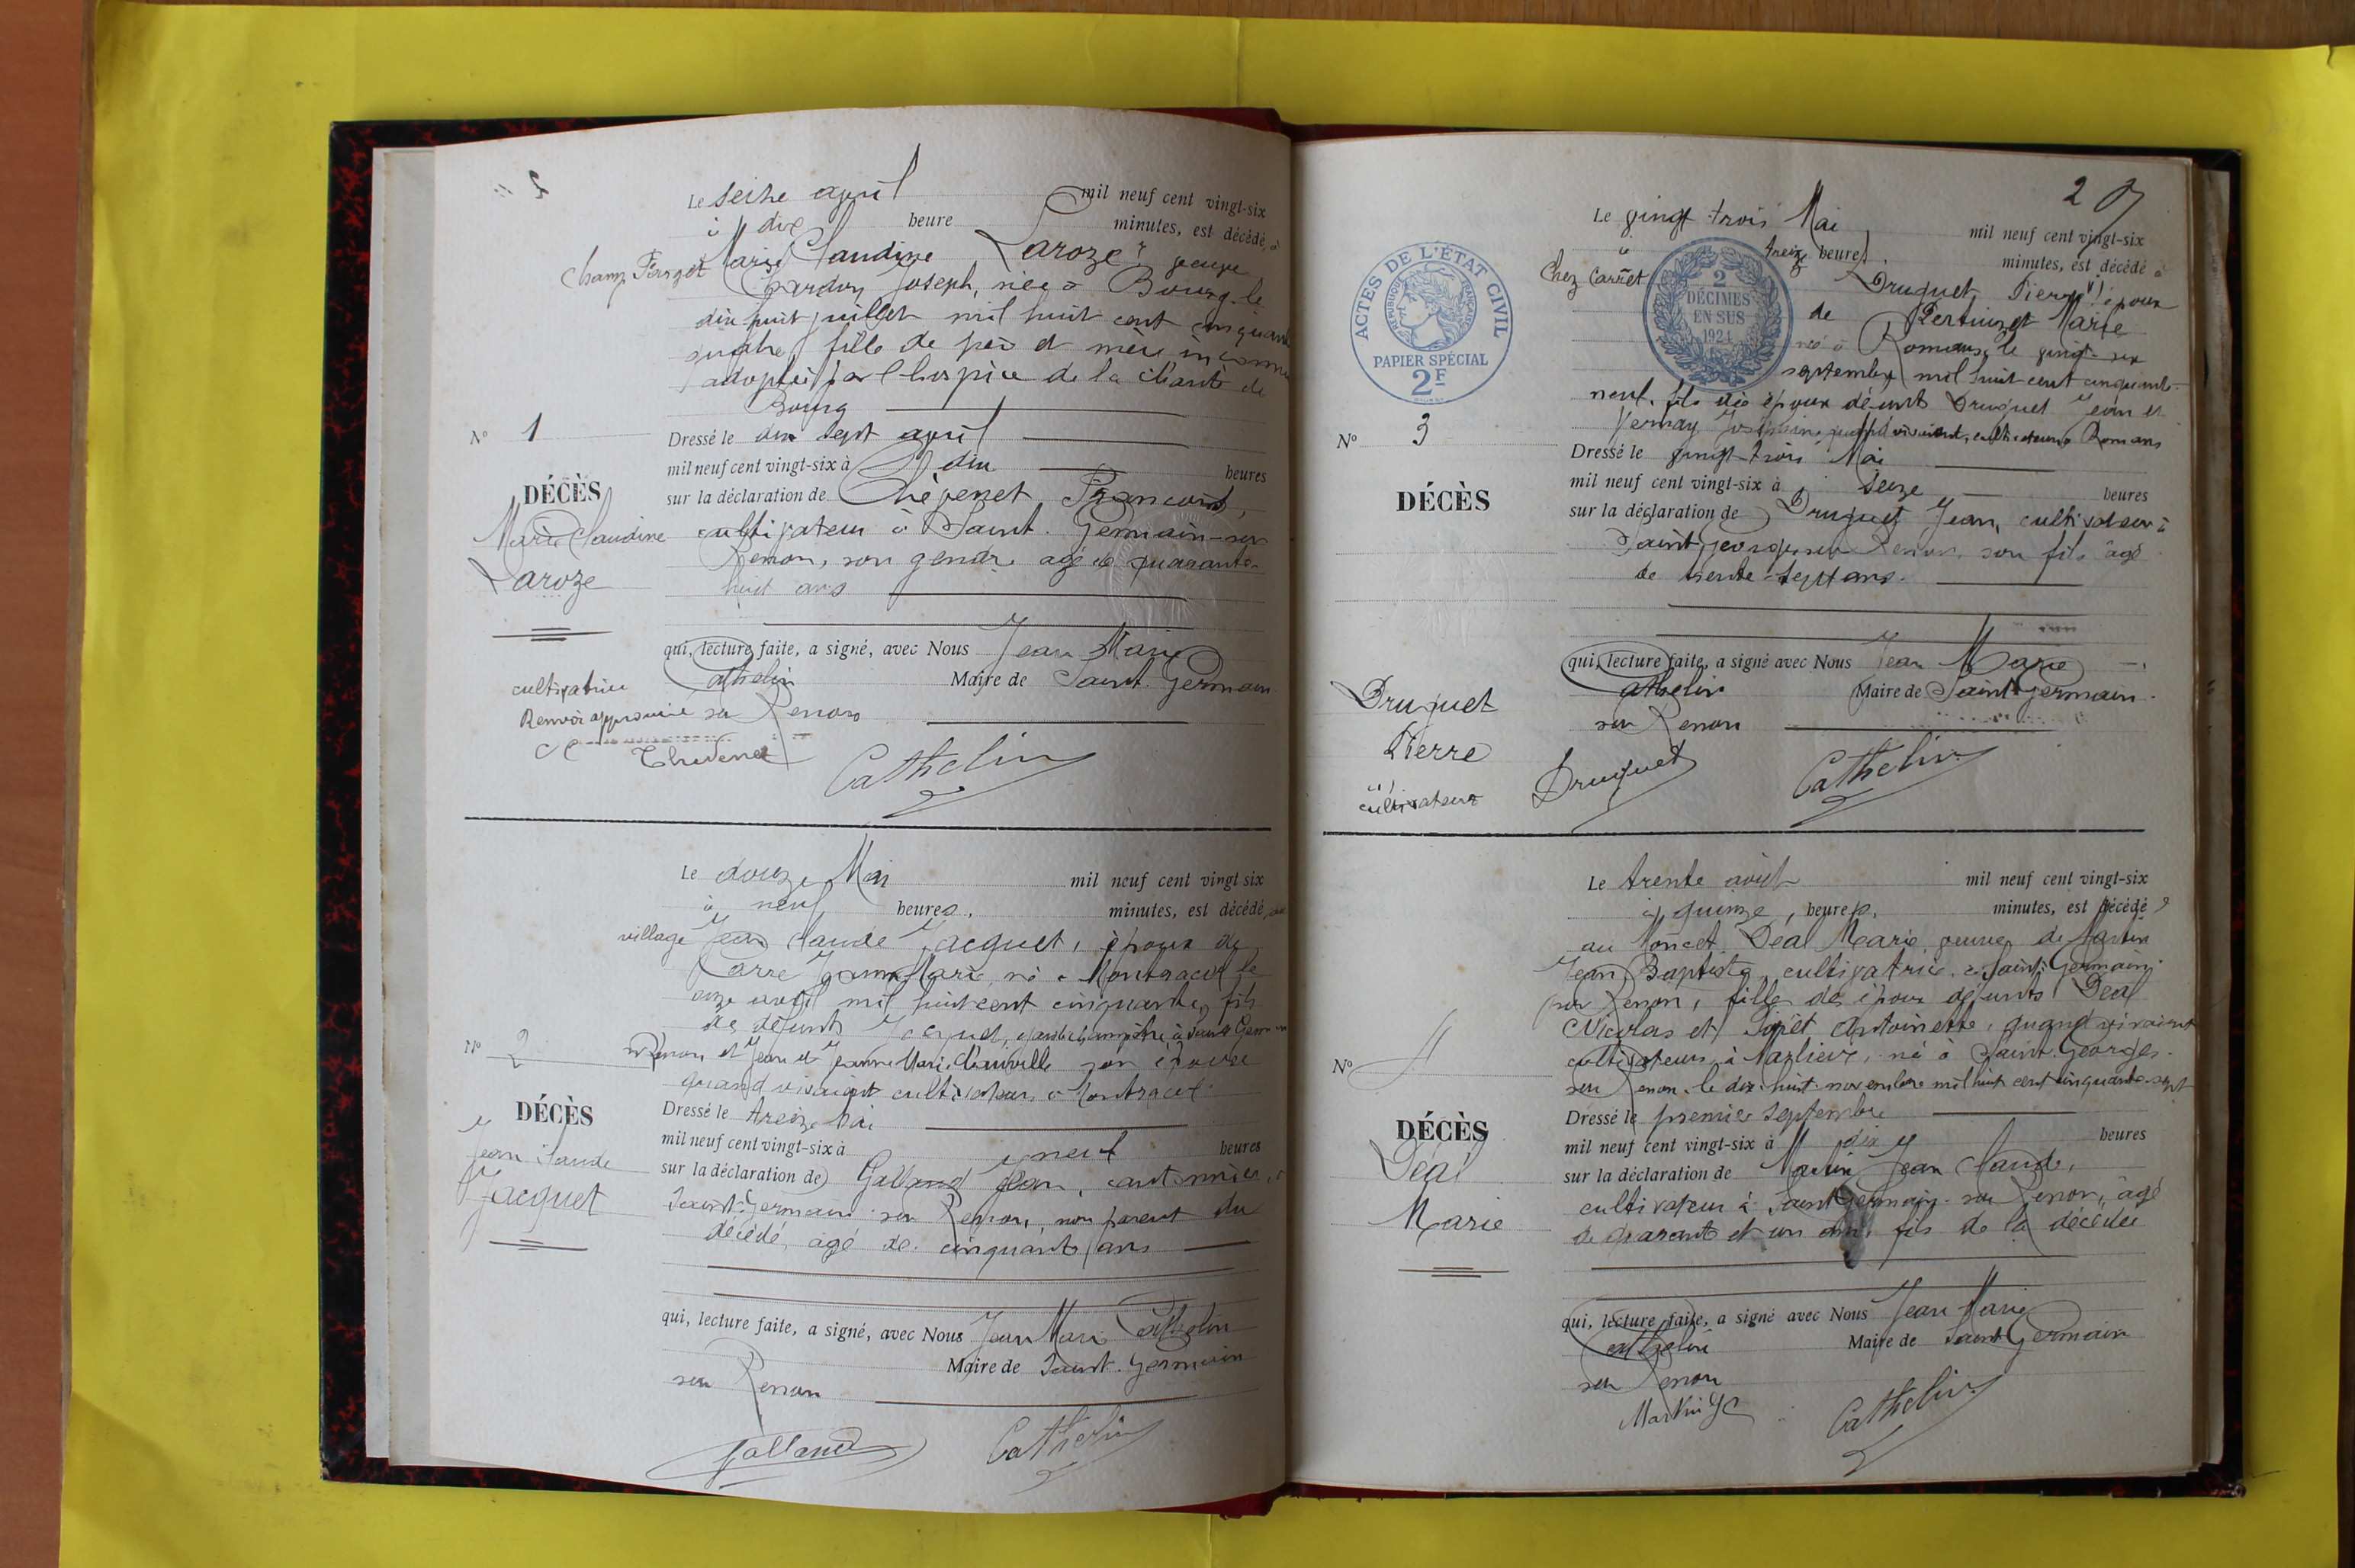 Le seize avril mil neuf cent vingt-six
à dix heure minutes, est décédé, à
Champ Marie Claudine Laroze veuve
Chardon Joseph, née à Bourg le
dix huit juillet mil huit cent cinquante
quatre fille de père et mère inconnu
adoptée par l'hospice de la Charité de
Bourg
N° 1
Dressé le dix sept avril
mil neuf cent vingt-six à dix heures
DÉCÈS
sur la déclaration de François,
Marie Claudine
cultivateur à Saint-Germain-sur
Renon, son gendre âgé de quarante-
Laroze
huit ans
qui, lecture faite, a signé, avec Nous Jean Marie
Cathelin Maire de Saint-Germain
cultivatrice
Renvoi approuvé
sur Renon
Cathelin
Le douze Mai mil neuf cent vingt-six
à neuf heures, minutes, est décédé, au
village Jean Claude Jacquet, époux de
Carre Jeanne Marie, né à Montracol le
onze avril mil huit cent cinquante, fils
de défunts Jacquet, garde champêtre à Saint Germain
N° 2
s Renon et Jean et Jeanne Marie son épouse
quand vivaient cultivateurs à Montracol
Dressé le treize Mai
DÉCÈS
mil neuf cent vingt-six à neuf heures
Jean Claude
sur la déclaration de Galland Jean, cantonnier à
Jacquet
Saint-Germain sur Renon, non parent du
décédé, âgé de cinquante ans
qui, lecture faite, a signé, avec Nous Jean Marie Cathelin
Maire de Saint-Germain
sur Renon
Galland Cathelin
2
Le vingt trois Mai mil neuf cent vingt-six
à treize heures minutes, est décédé à
Chez Carret Druguet Pierre (1) époux
de Pertuizet Marie
né à Romans le vingt-six
septembre mil huit cent cinquante-
neuf, fils des époux défunts Druguet Jean et
Vernay Josephine quand vivaient, cultivateurs Romans
ACTES DE L'ÉTAT CIVIL
RÉPUBLIQUE FRANÇAISE
PAPIER SPÉCIAL
2F
2
DÉCIMES
EN SUS
1924
N° 3
Dressé le vingt-trois Mai
mil neuf cent vingt-six à seize heures
DÉCÈS
sur la déclaration de Druguet Jean, cultivateur à
Saint-Georges-sur Renon, son fils âgé
de trente-sept ans.
qui, lecture faite, a signé avec Nous Jean Marie
Cathelin Maire de Saint-Germain
sur Renon
Druguet
Pierre
(1)
cultivateur
Druguet Cathelin
Le trente août mil neuf cent vingt-six
à quinze, heures, minutes, est décédé
au Moncet Déal Marie veuve de Martin
Jean Baptiste, cultivatrice à Saint-Germain
sur Renon, fille des époux défunts Déal
Nicolas et Antoinette, quand vivaient
cultivateurs à Marlieux, né à Saint-Georges-
sur Renon le dix-huit novembre mil huit cent cinquante-sept
N° 4
Dressé le premier septembre
DÉCÈS
mil neuf cent vingt-six à dix heures
Déal
sur la déclaration de Martin Jean Claude,
cultivateur à Saint Germain-sur Renon, âgé
Marie
de quarante et un ans, fils de la décédée
qui, lecture faite, a signé avec Nous Jean Marie
Cathelin Maire de Saint Germain
sur Renon
Martin JC Cathelin